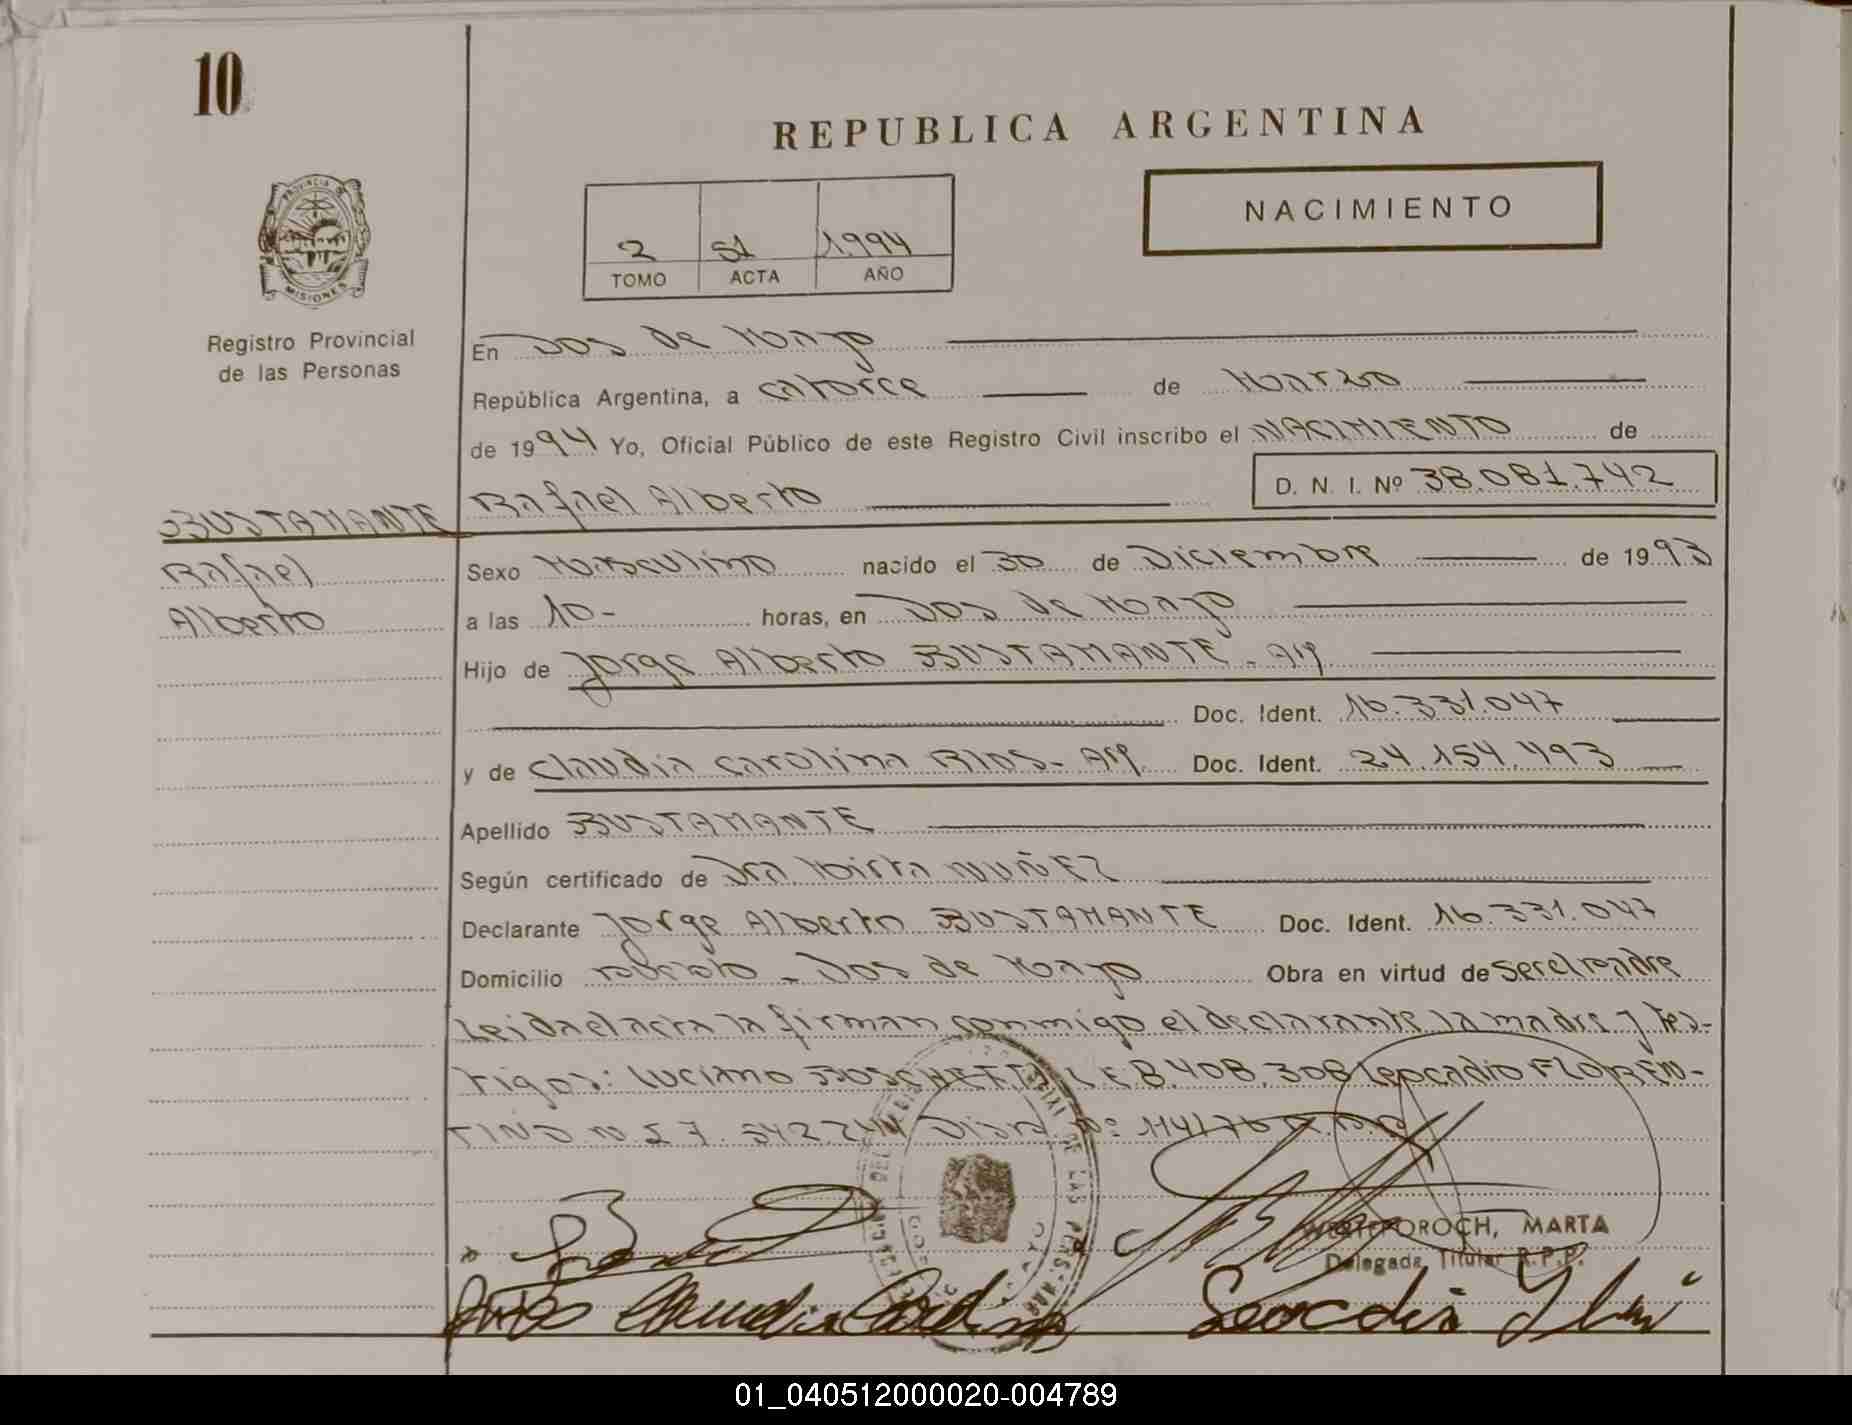 10
REPUBLICA ARGENTINA
NACIMIENTO
2 51 1.994
TOMO ACTA AÑO
PROVINCIA DE
MISIONES
Registro Provincial
de las Personas
En Dos de Mayo
República Argentina, a catorce de Marzo
de 1994 Yo, Oficial Público de este Registro Civil inscribo el NACIMIENTO de
BUSTAMANTE Rafael Alberto D. N. I. Nº 38.081.742
Rafael
Alberto
Sexo Masculino nacido el 30 de Diciembre de 1993
a las 10- horas, en Dos de Mayo
Hijo de Jorge Alberto BUSTAMANTE - Arg.
Doc. Ident. 16.331.047
y de Claudia Carolina RIOS - Arg. Doc. Ident. 24.154.493
Apellido BUSTAMANTE
Según certificado de Dra Mirta NUÑEZ
Declarante Jorge Alberto BUSTAMANTE Doc. Ident. 16.331.047
Domicilio Dos de Mayo Obra en virtud de ser el padre
Leida el acta la firman conmigo el declarante la madre y tes-
tigos: Luciano BOSCHETTI L.E 8.408.308 Leocadio FLOREN-
TINO
WESTEROROCH, MARTA
Delegada Titular R.P.P.
Rios Claudia Carolina
01_040512000020-004789